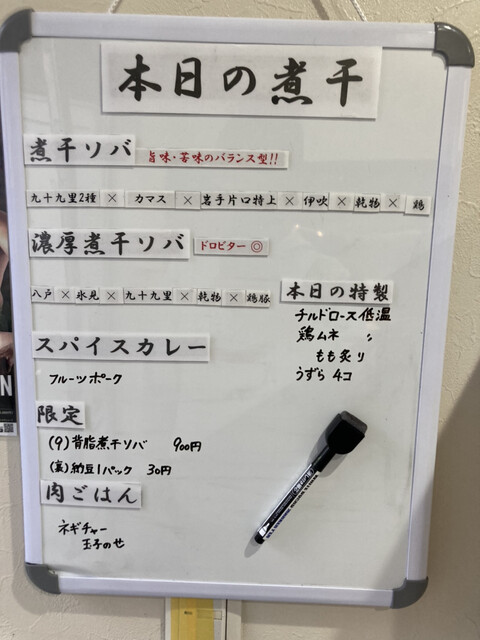 本日の煮干
煮干ソバ 旨味・苦味のバランス型!!
九十九里2種 × カマス × 岩手片口特上 × 伊吹 × 乾物 × 鶏
濃厚煮干ソバ ドロビター◎
八戸 × 氷見 × 九十九里 × 乾物 × 鶏豚
本日の特製
チルドロース低温
鶏ムネ 〃
もも炙り
うずら 4コ
スパイスカレー
フルーツポーク
限定
(9) 背脂煮干ソバ 900円
納豆1パック 30円
肉ごはん
ネギチャー
玉子のせ